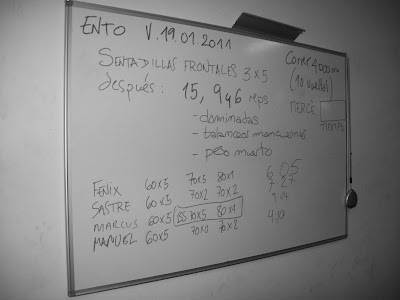 ENTO V.19.01.2011
SENTADILLAS FRONTALES 3x5
después: 15, 9 y 6 reps
- dominadas
- balanceos mancuernas
- peso muerto
Correr 4000m
(10 vueltas)
MERCÈ
TIEMPO
FENIX 60x5 70x5 80x1 6:05
SASTRE 60x5 70x2 70x2 7:27
MARCUS 60x5 65 70x5 80x1
MANUEL 60x5 70x0 70x2 4:10